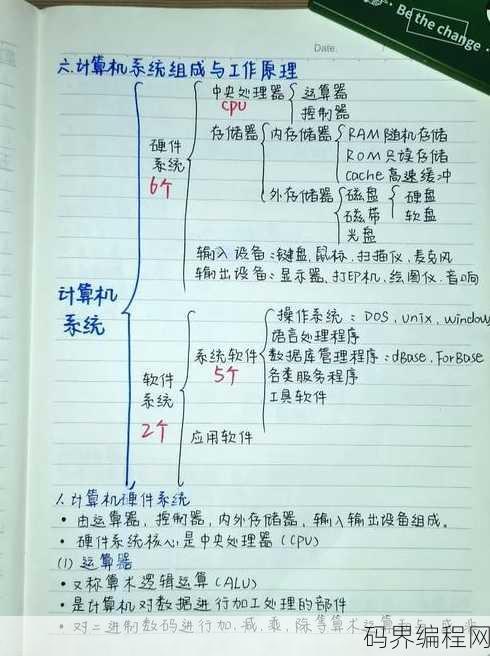 Be the change.
Date.
六.计算机系统组成与工作原理
中央处理器 运算器
CPU 控制器
硬件系统 6个
存储器 内存储器 RAM随机存储
ROM只读存储
cache高速缓冲
外存储器 磁盘 硬盘
磁带 软盘
光盘
输入设备:键盘.鼠标.扫描仪.麦克风
输出设备:显示器.打印机.绘图仪.音响
计算机系统
操作系统:DOS.unix.window
语言处理程序
系统软件 数据库管理程序:dBase.ForBase
5个 各类服务程序
工具软件
软件系统
2个
应用软件
1.计算机硬件系统
• 由运算器,控制器,内外存储器,输入输出设备组成。
• 硬件系统核心是中央处理器(CPU)
(1) 运算器
• 又称算术逻辑运算(ALU)
• 是计算机对数据进行加工处理的部件
• 对二进制数码进行加.减.乘,除等算术运算和与.或.非
码界编程网